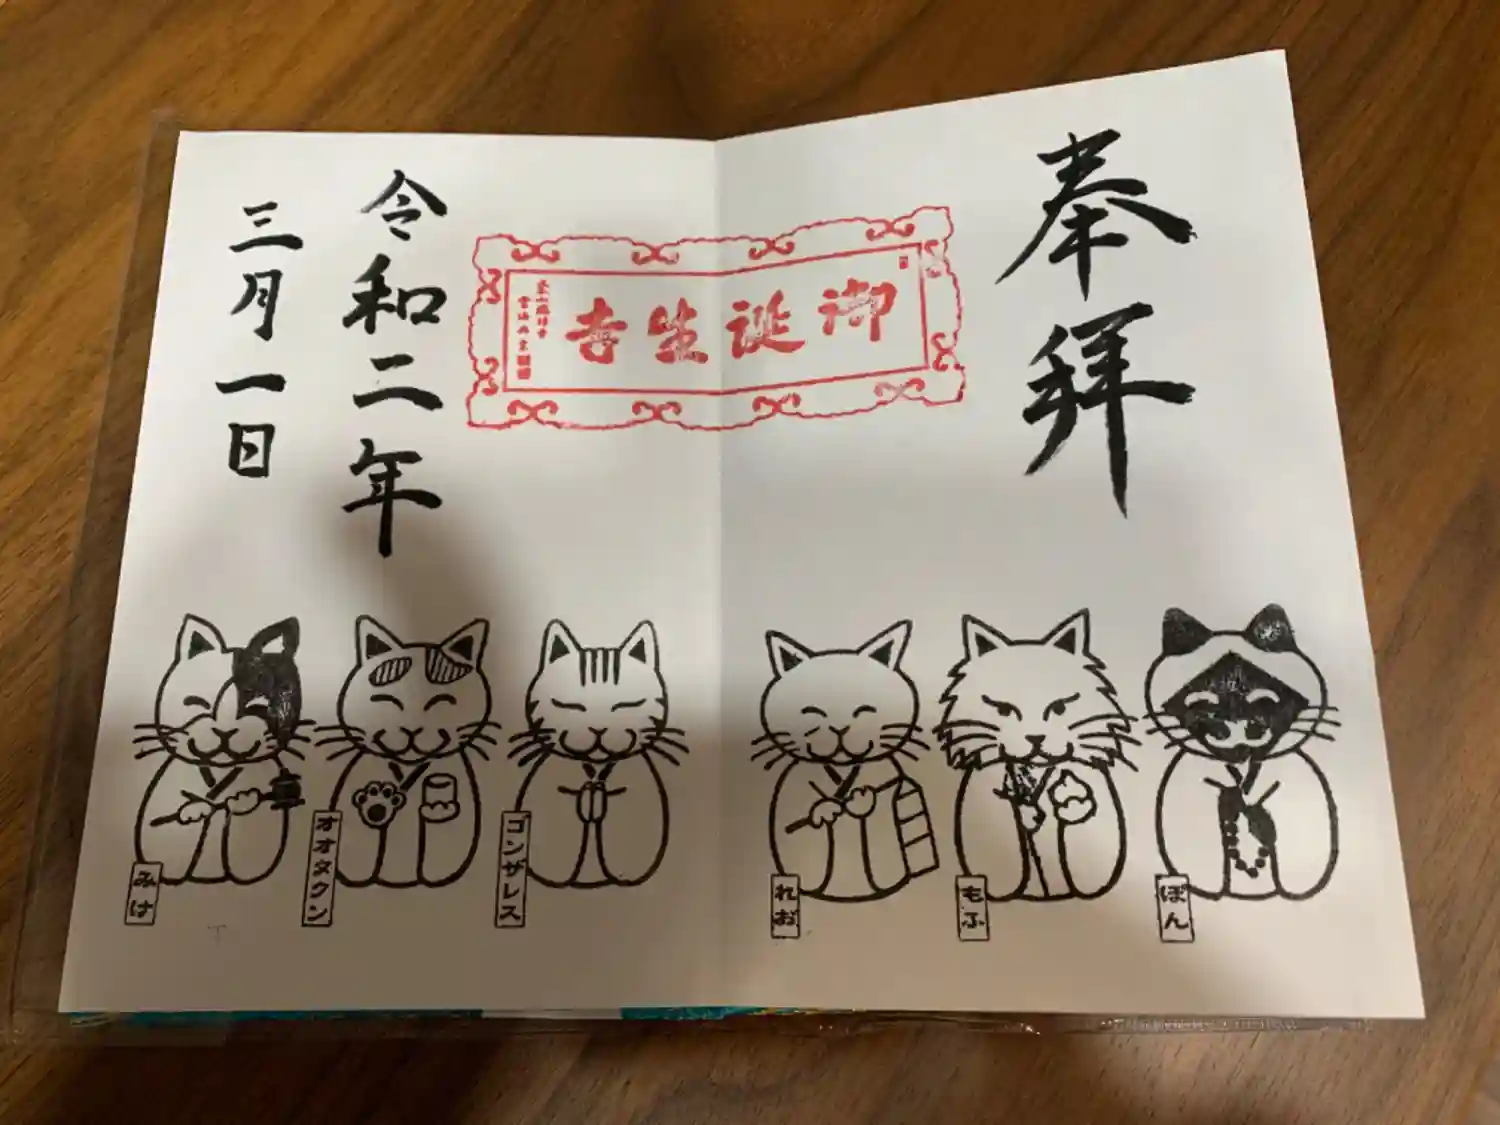 奉拝
御誕生寺
令和二年
三月一日
みけ
オオタクン
ゴンザレス
れお
もふ
ぽん